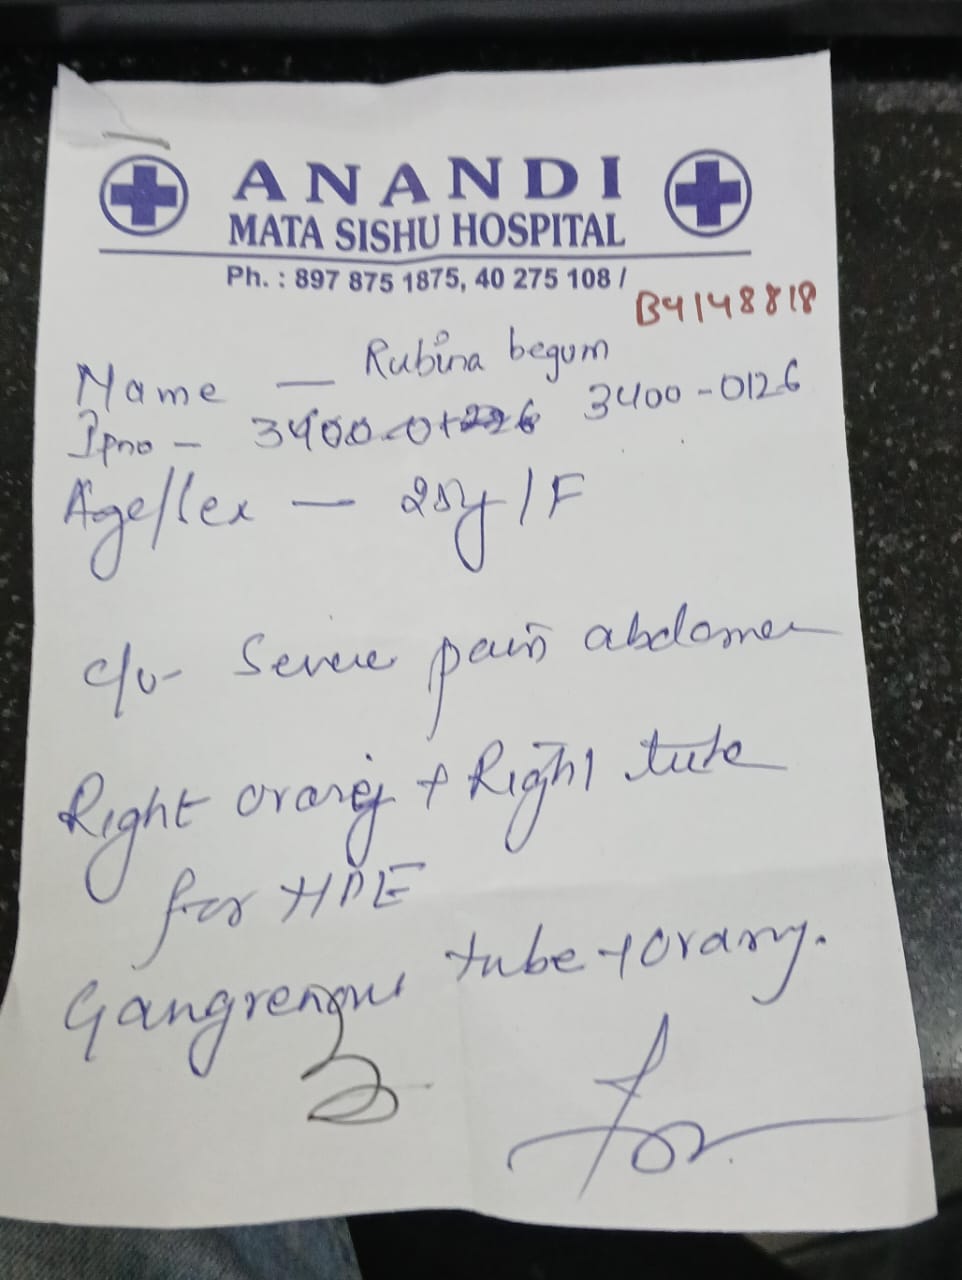 ANANDI
MATA SISHU HOSPITAL
Ph. : 897 875 1875, 40 275 108 /
B4148818
Name — Rubina begum
Ipno — 3400-0126
Age/Sex — 25y/F
c/o- Severe pain abdomen
Right ovary + Right tube
for HPE
Gangrenous tube + ovary.